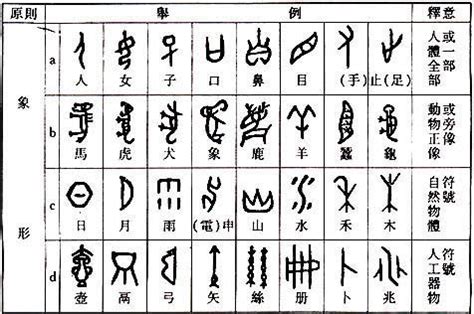 原則 舉例 釋意
象形
a 人 女 子 口 鼻 目 (手) 止(足)
人體全部
或一部
b 馬 虎 犬 象 鹿 羊 蠶 龜
動物正像
或旁像
c 日 月 雨 (電)申 山 水 禾 木
自然物體
符號
d 壺 鬲 弓 矢 絲 册 卜 兆
人工器物
符號